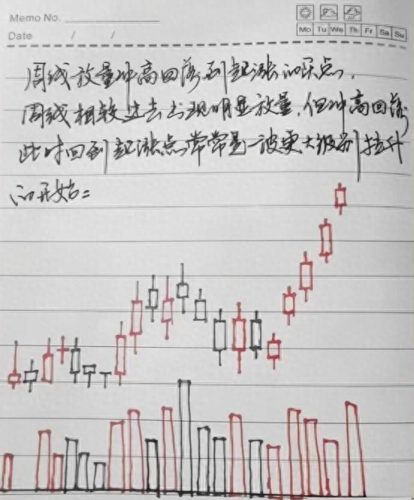 Memo No.
Mo Tu We Th Fr Sa Su
Date / /
周线放量冲高回落到起涨的买点。
周线相较过去出现明显放量,但冲高回落
此时回到起涨点,常常是一波更大级别拉升
的开始: